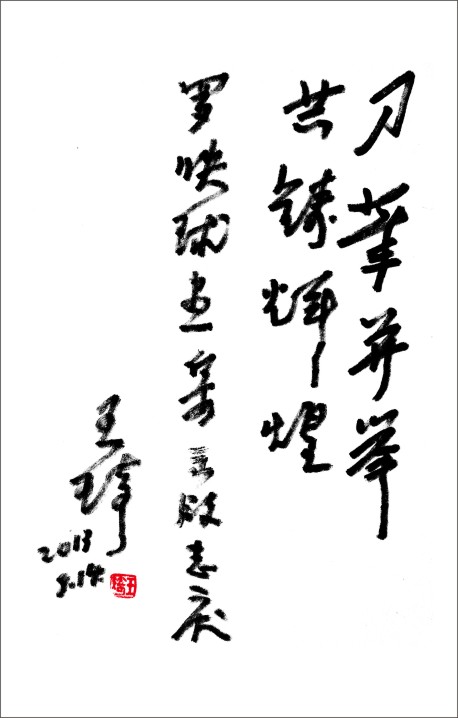 刀筆并举
共铸辉煌
罗映球画集出版志庆
王琦
2013
5.14.
王琦